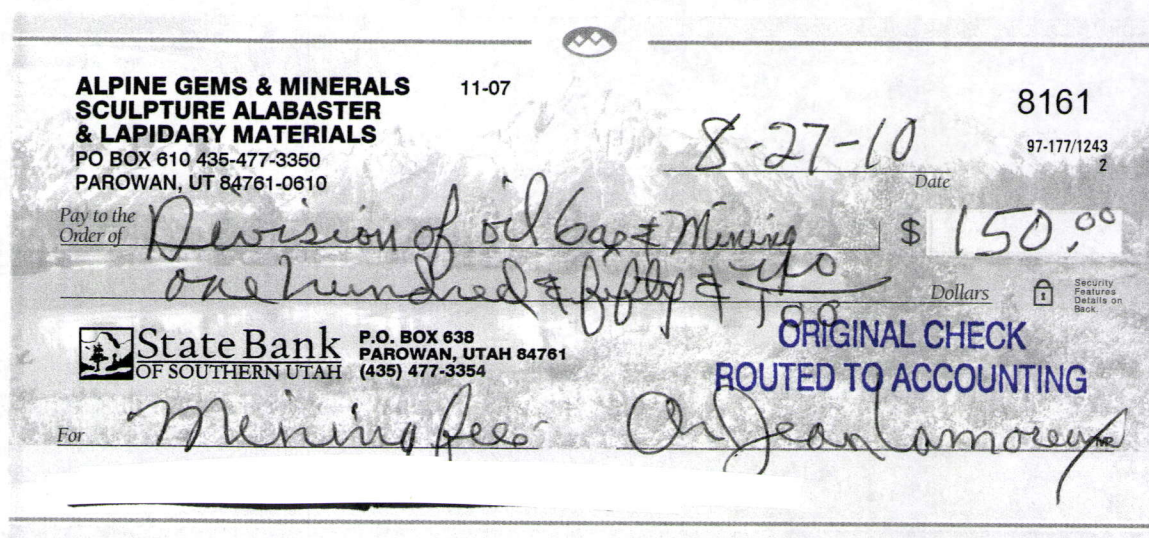 ALPINE GEMS & MINERALS 11-07
SCULPTURE ALABASTER 8161
& LAPIDARY MATERIALS
PO BOX 610 435-477-3350 8-27-10 97-177/1243
PAROWAN, UT 84761-0610 Date 2
Pay to the
Order of Division of oil Gas & Mining $ 150.00
one hundred & fifty & no/100 Dollars
Security
Features
Details on
Back.
State Bank
OF SOUTHERN UTAH
P.O. BOX 638
PAROWAN, UTAH 84761
(435) 477-3354
ORIGINAL CHECK
ROUTED TO ACCOUNTING
For Mining fees Jean Lamoreaux
MP